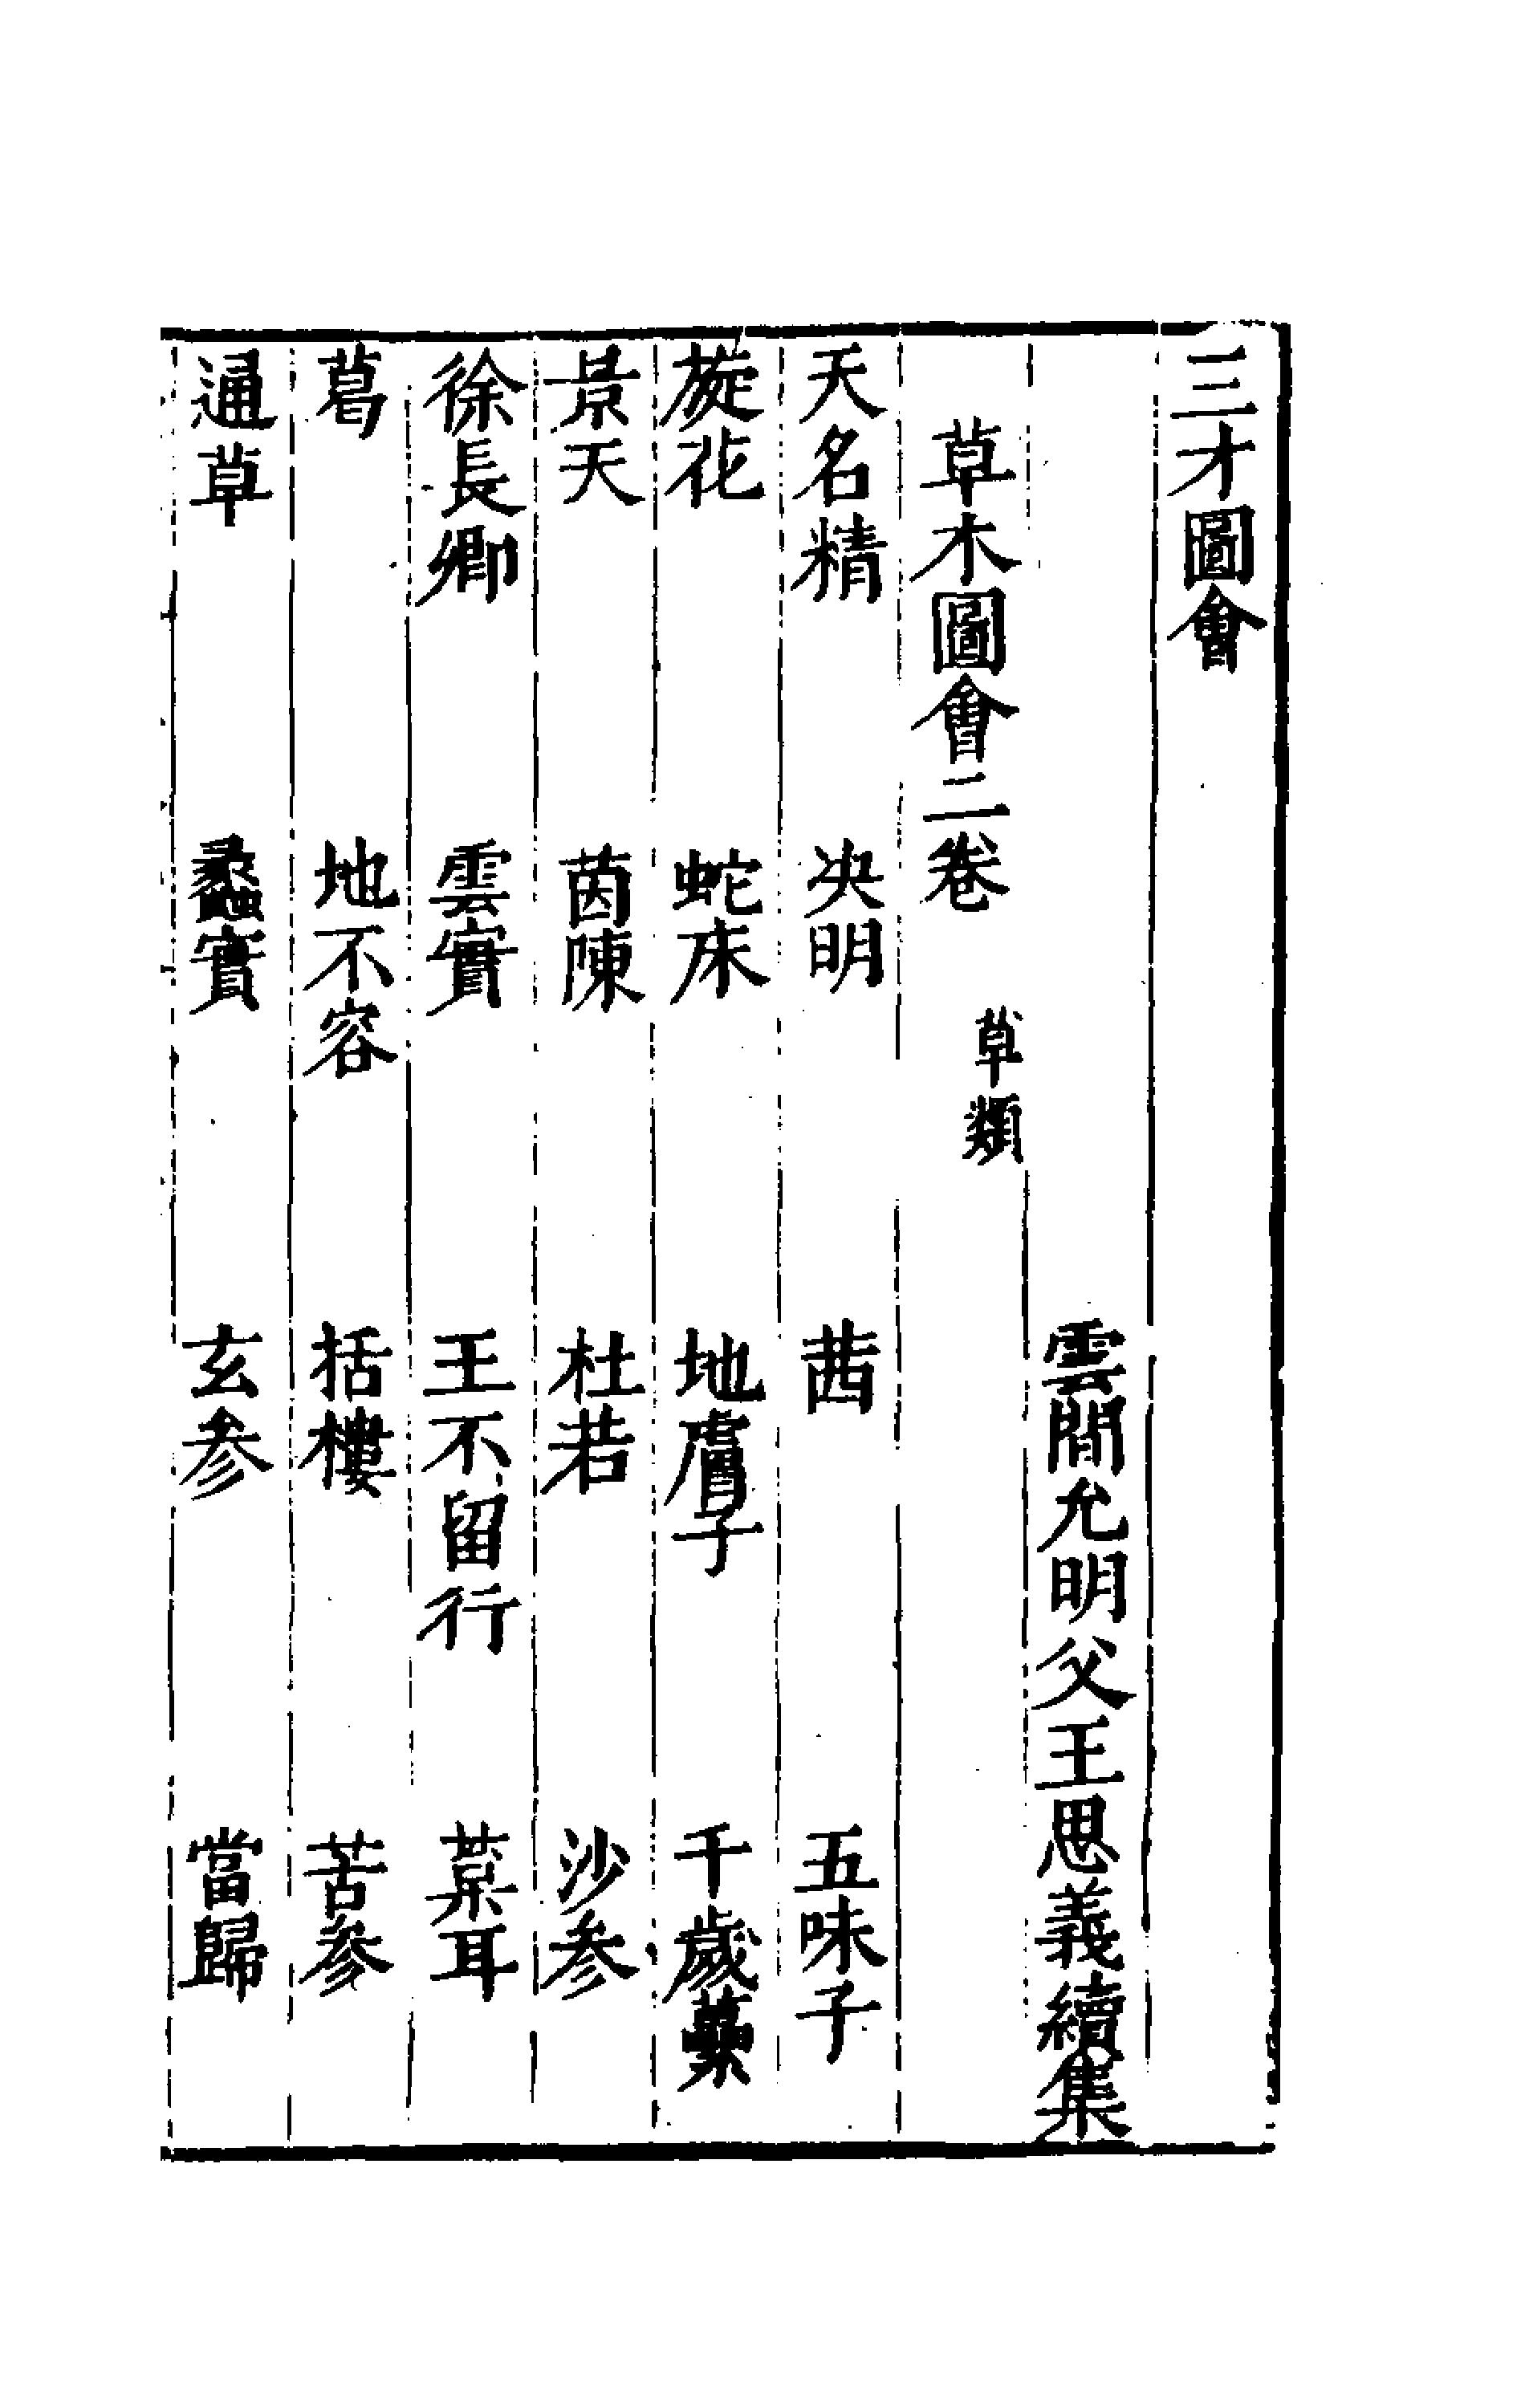 三才圖會
雲間允明父王思義續集
草木圖會二卷 草類
天名精 决明 茜 五味子
旋花 蛇床 地膚子 千歲虆
景天 茵陳 杜若 沙参
徐長卿 雲實 王不留行 葈耳
葛 地不容 括樓 苦參
通草 蠡實 玄参 當歸